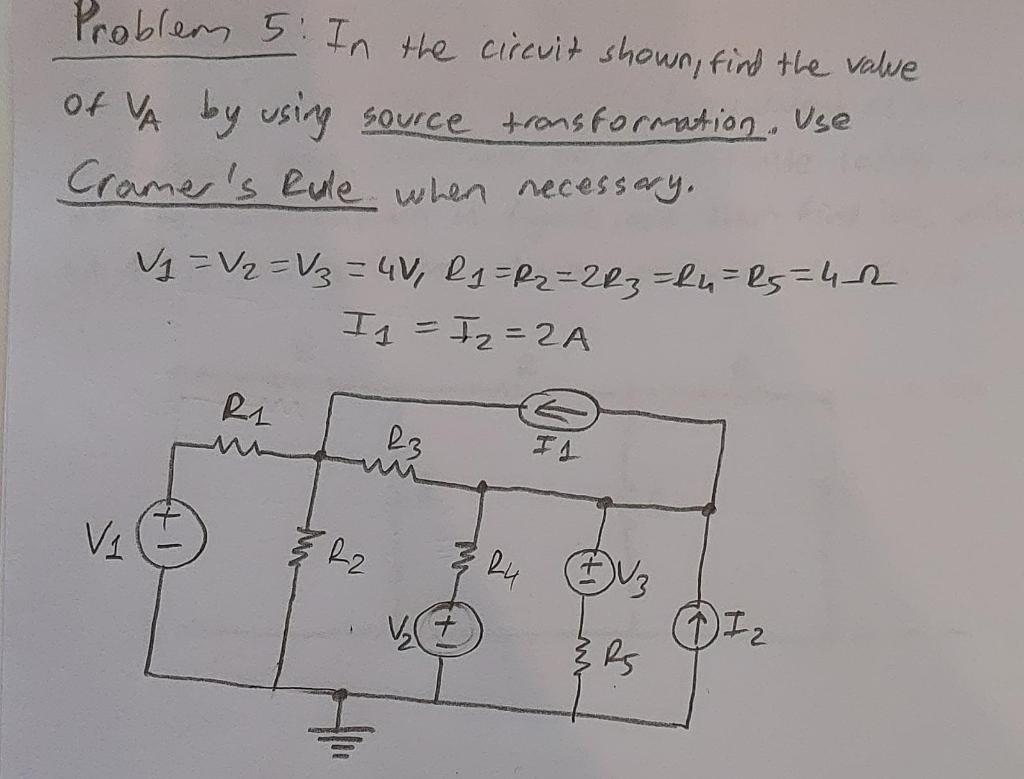 Problem 5: In the circuit shown, find the value
of VA by using source transformation. Use
Cramer's Rule when necessary.
V1 = V2 = V3 = 4V, R1 = R2 = 2R3 = R4 = R5 = 4Ω
I1 = I2 = 2A
R1
R3
I1
V1
+
-
R2
R4
+
-
V3
V2
+
-
I2
R5